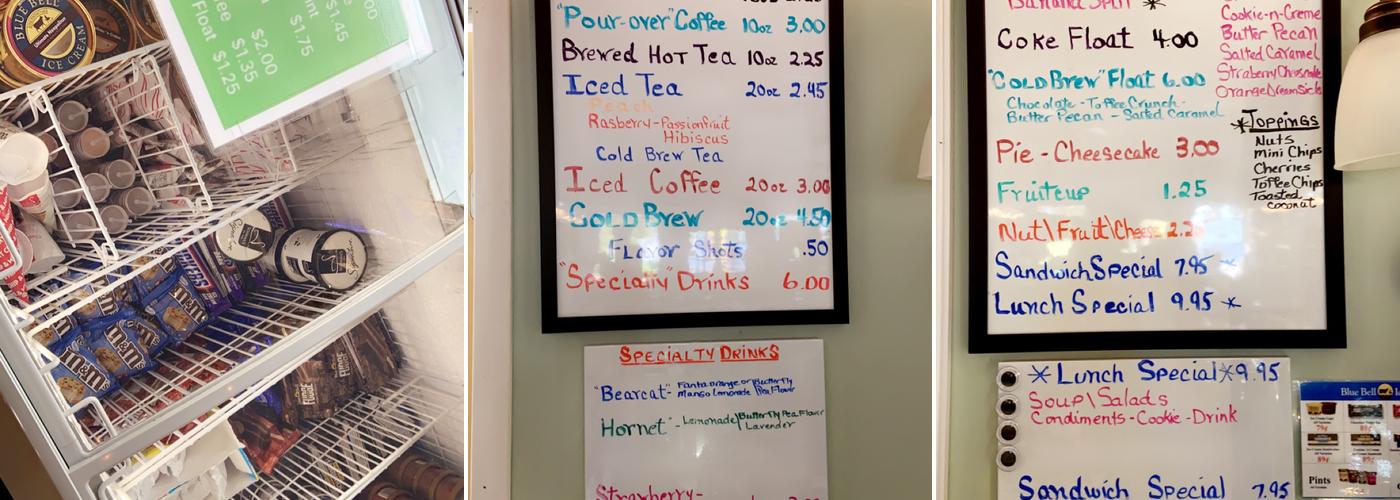 BLUE BELL
ICE CREAM
$1.45
$1.75
$2.00
$1.35
Float $1.25
M&M's
M&M's
"Pour-over" Coffee 10oz 3.00
Brewed Hot Tea 10oz 2.25
Iced Tea 20oz 2.45
Peach
Rasberry-Passionfruit
Hibiscus
Cold Brew Tea
Iced Coffee 20oz 3.00
Cold Brew 20oz 4.50
Flavor Shots .50
"Specialty" Drinks 6.00
Specialty Drinks
"Bearcat"- Fanta orange or Butterfly
Mango Lemonade Pea Flavor
Hornet"- Lemonade/Butterfly Pea Flavor
Lavender
Strawberry-
Banana Split *
Coke Float 4.00
"Cold Brew" Float 6.00
Chocolate - Toffee Crunch-
Butter Pecan - Salted Caramel
Pie - Cheesecake 3.00
Fruitcup 1.25
Nut\Fruit\Cheese 2.25
Sandwich Special 7.95 *
Lunch Special 9.95 *
Cookie-n-Creme
Butter Pecan
Salted Caramel
Straberry Cheesecake
Orange Dreamsicle
*Toppings
Nuts
Mini Chips
Cherries
Toffee Chips
Toasted
coconut
*Lunch Special* 9.95
Soup\Salads
Condiments-Cookie-Drink
Sandwich Special 7.95
Blue Bell
79¢
89¢
89¢
Pints